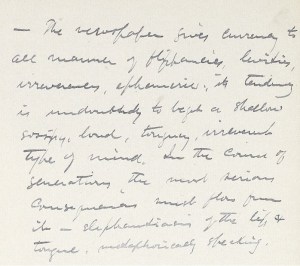 — The newspaper gives currency to
all manner of flippancies, levities,
irreverences, ephemerae; its tendency
is undoubtedly to beget a shallow
gossipy, loud, tonguey, irreverent
type of mind. In the course of
generations, the most serious
consequences must flow from
it — elephantiasis of the lips &
tongue, metaphorically speaking.